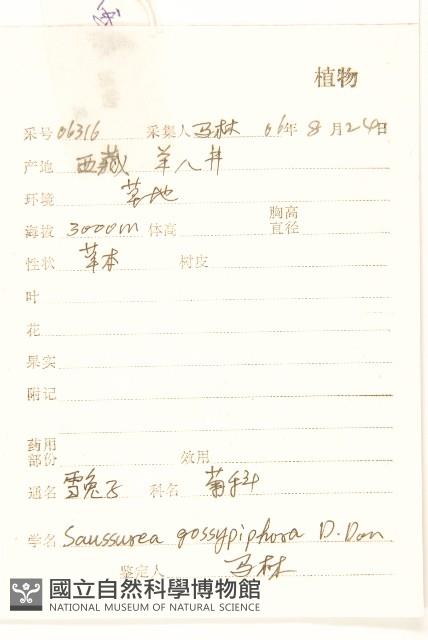 植物
采号 06316 采集人 马林 06年 8月24日
产地 西藏 羊八井
环境 草地
海拔 3000m 体高 胸高直径
性状 草本 树皮
叶
花
果实
附记
药用部份 效用
通名 雪兔子 科名 菊科
学名 Saussurea gossypiphora D. Don
鉴定人 马林
國立自然科學博物館
NATIONAL MUSEUM OF NATURAL SCIENCE